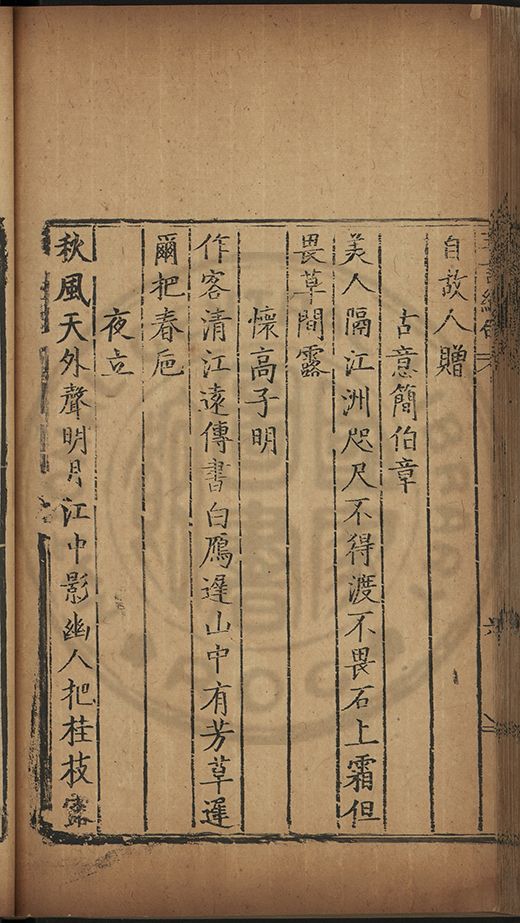 自故人贈
古意簡伯章
美人隔江洲咫尺不得渡不畏石上霜但
畏草間露
懷高子明
作客清江遠傳書白鴈遲山中有芳草遲
爾把春巵
夜立
秋風天外聲明月江中影幽人把桂枝露